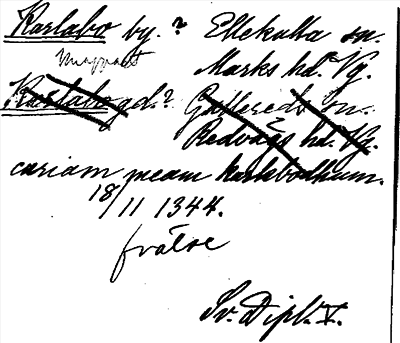 Karlabo by.? Ellekulla sn.
Marks hd. Vg.
Karlabo gd.? Gullereds sn.
Redvägs hd. Vg.
curiam meam karlabodhum.
18/11 1344.
frälse
Sv. Dipl. V.